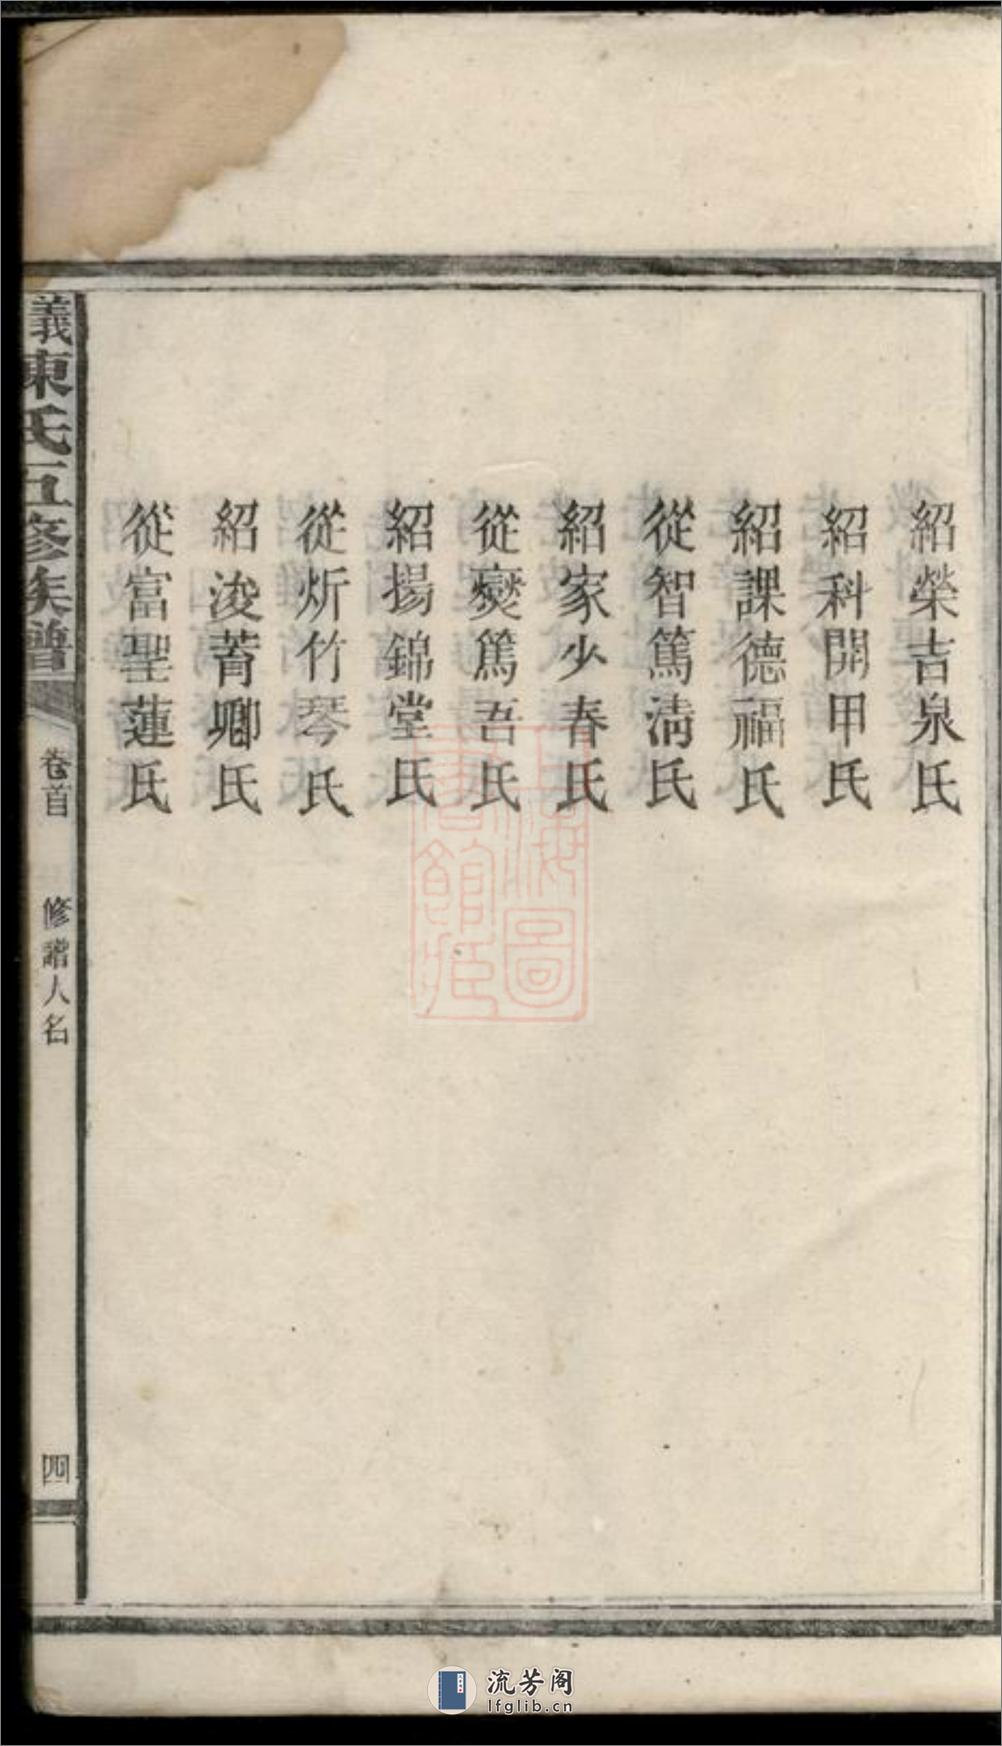 紹榮吉泉氏
紹科開甲氏
紹課德福氏
從智篤清氏
紹家少春氏
從爕篤吾氏
紹揚錦堂氏
從炘竹琴氏
紹浚菁卿氏
從富聖蓮氏
義陳氏五修族譜
卷首
修譜人名
四
上海圖書館藏
流芳阁
lfglib.cn